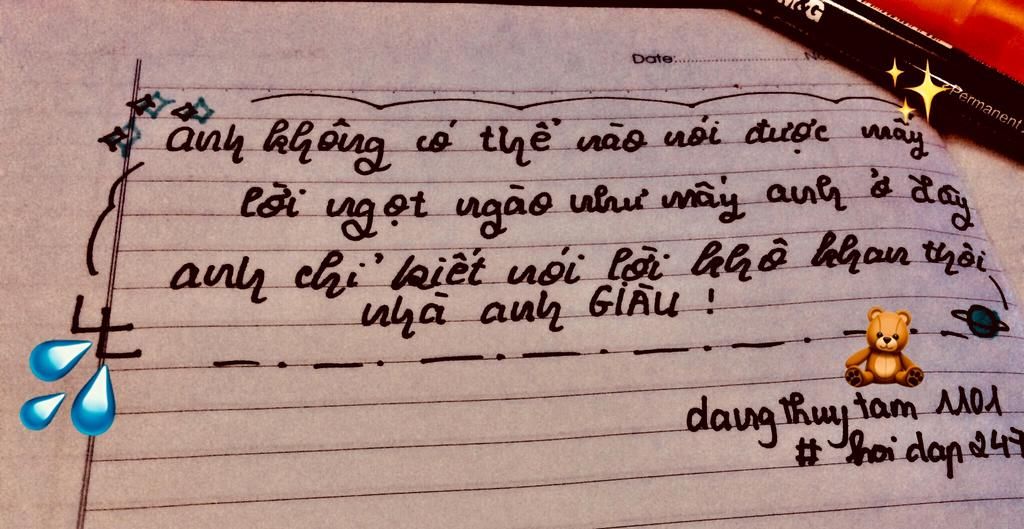 M&G
Permanent
Date:
No
anh không có thể nào nói được mấy
lời ngọt ngào như mấy anh ở đây
anh chỉ biết nói lời khô khan thôi
nhà anh GIÀU !
dangthuytam 1101
# hoidap247